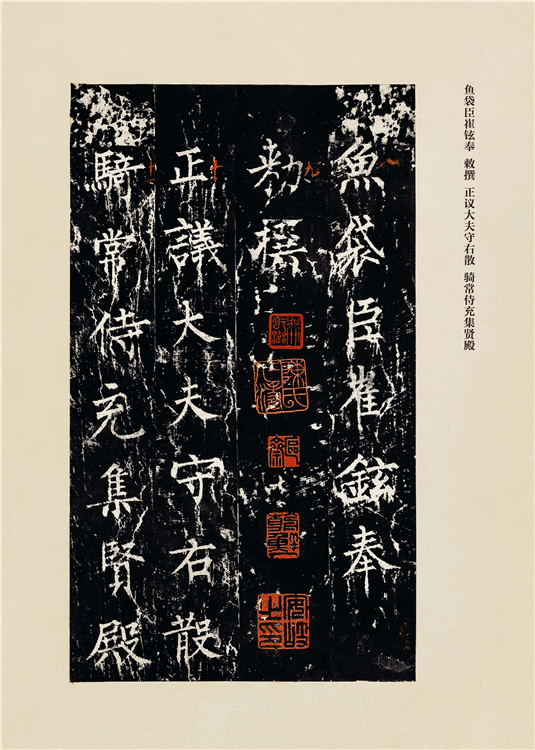 鱼袋臣崔铉奉 敕撰 正议大夫守右散 骑常侍充集贤殿
魚袋臣崔鉉奉
勅撰
正議大夫守右散
騎常侍充集賢殿
九
十
十一